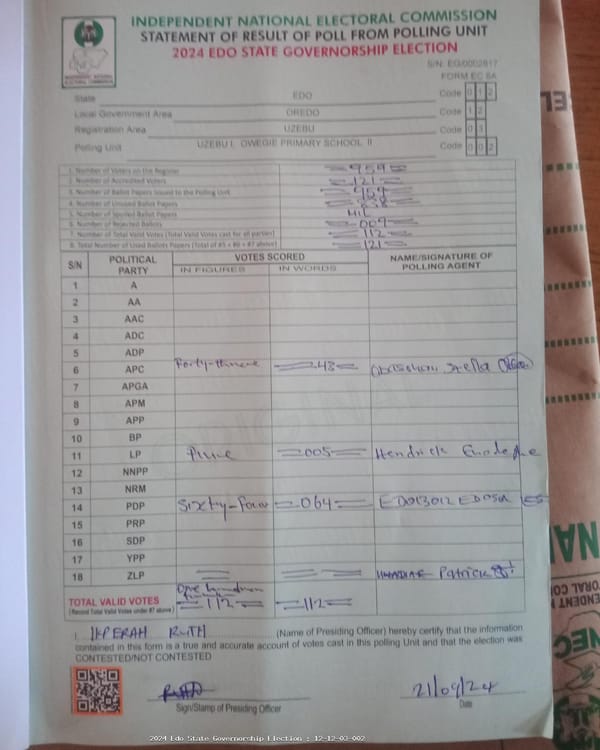 INDEPENDENT NATIONAL ELECTORAL COMMISSION
STATEMENT OF RESULT OF POLL FROM POLLING UNIT
2024 EDO STATE GOVERNORSHIP ELECTION
S/N: EG/0002617
FORM EC 8A
State EDO Code 0 1 2
Local Government Area OREDO Code 1 2
Registration Area UZEBU Code 0 3
Polling Unit UZEBU I, OWEGIE PRIMARY SCHOOL II Code 0 0 2
1. Number of Voters on the Register 959
2. Number of Accredited Voters 121
3. Number of Ballot Papers Issued to the Polling Unit 959
4. Number of Unused Ballot Papers 838
5. Number of Spoiled Ballot Papers NIL
6. Number of Rejected Ballots 009
7. Number of Total Valid Votes (Total Valid Votes cast for all parties) 112
8. Total Number of Used Ballots Papers (Total of #5 + #6 + #7 above) 121
S/N POLITICAL PARTY VOTES SCORED NAME/SIGNATURE OF POLLING AGENT
IN FIGURES IN WORDS
1 A
2 AA
3 AAC
4 ADC
5 ADP
6 APC Forty-three 43 Stella
7 APGA
8 APM
9 APP
10 BP
11 LP Five 005 Hendrick
12 NNPP
13 NRM
14 PDP Sixty-four 064
15 PRP
16 SDP
17 YPP
18 ZLP Patrick
TOTAL VALID VOTES One hundred 112 112
(Record Total Valid Votes under #7 above)
I, IKPERAH RUTH (Name of Presiding Officer) hereby certify that the information
contained in this form is a true and accurate account of votes cast in this polling Unit and that the election was
CONTESTED/NOT CONTESTED
21/09/24
Sign/Stamp of Presiding Officer Date
2024 Edo State Governorship Election : 12-12-03-002